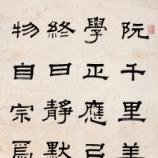 阮千里美
學正應弓
終日靜默
物自宗焉